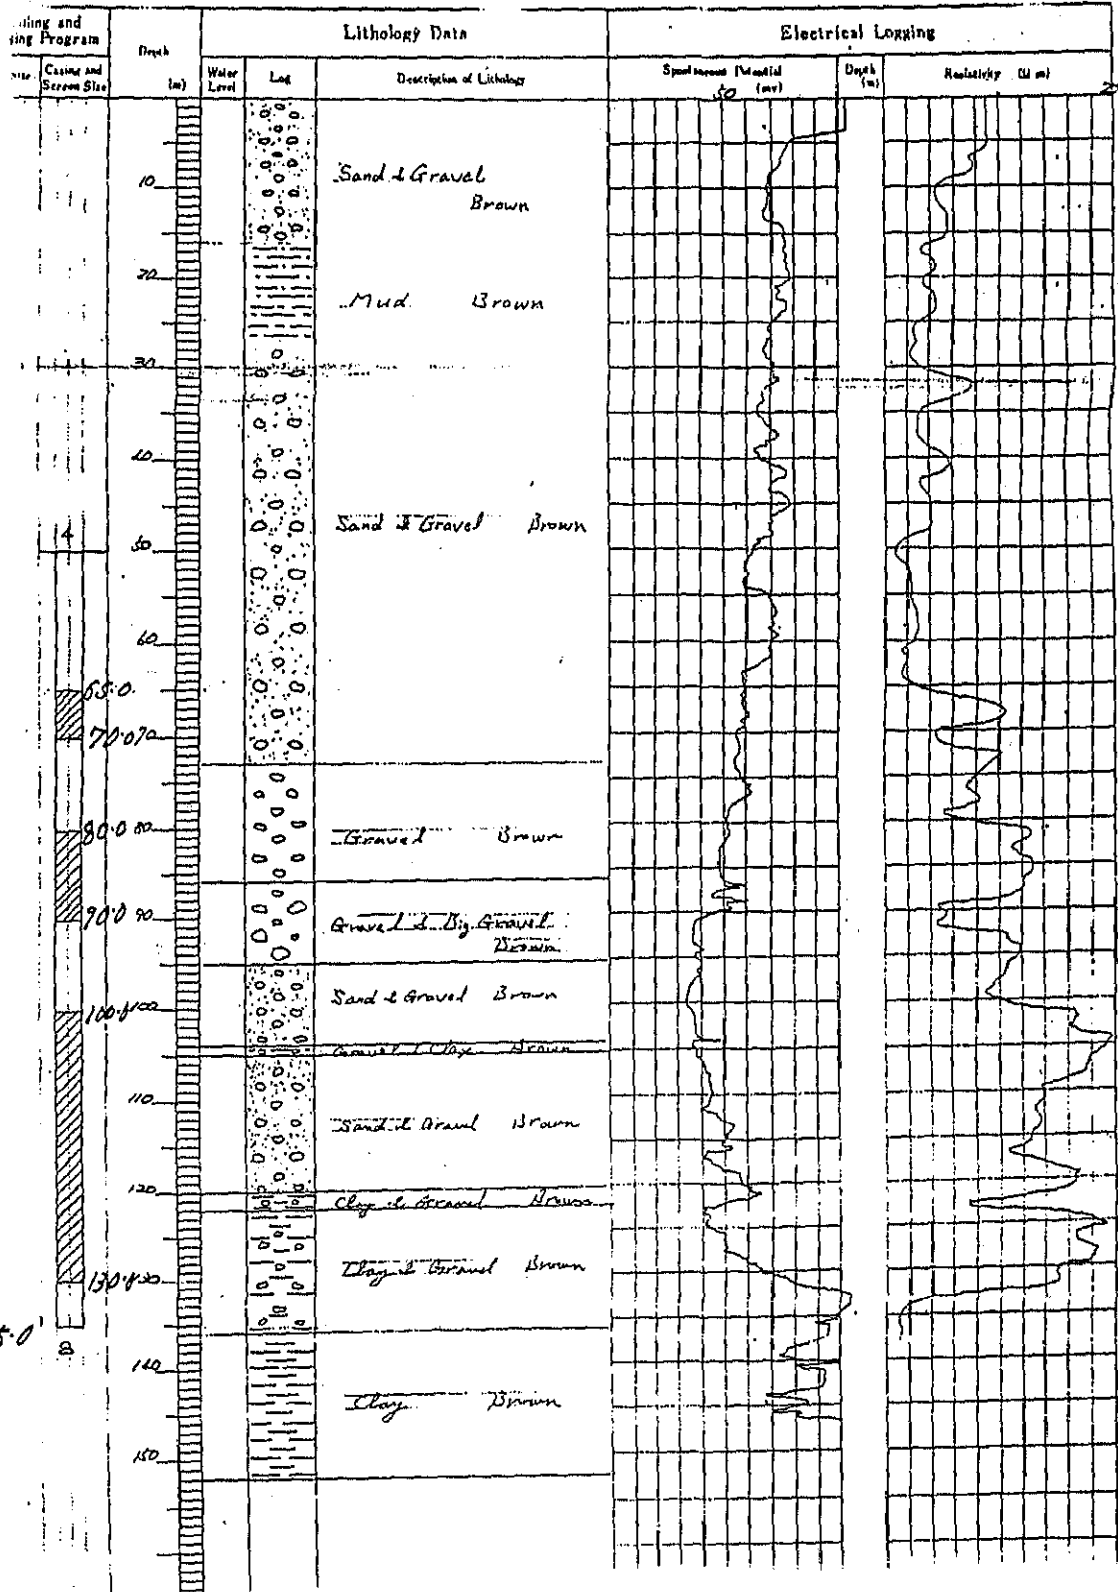 illing and
ing Program
Depth
(m)
Lithology Data
Electrical Logging
Casing and
Screen Size
Water
Level
Log
Description of Lithology
Spontaneous Potential
(mv)
50
Depth
(m)
Resistivity (Ω m)
10
20
30
40
50
60
70
80
90
100
110
120
130
140
150
4
65.0
70.0
80.0
90.0
100.0
130.0
5.0
8
Sand & Gravel
Brown
Mud Brown
Sand & Gravel Brown
Gravel Brown
Gravel & Big Gravel
Brown
Sand & Gravel Brown
Gravel & Clay Brown
Sand & Gravel Brown
Clay & Gravel Brown
Clay & Gravel Brown
Clay Brown